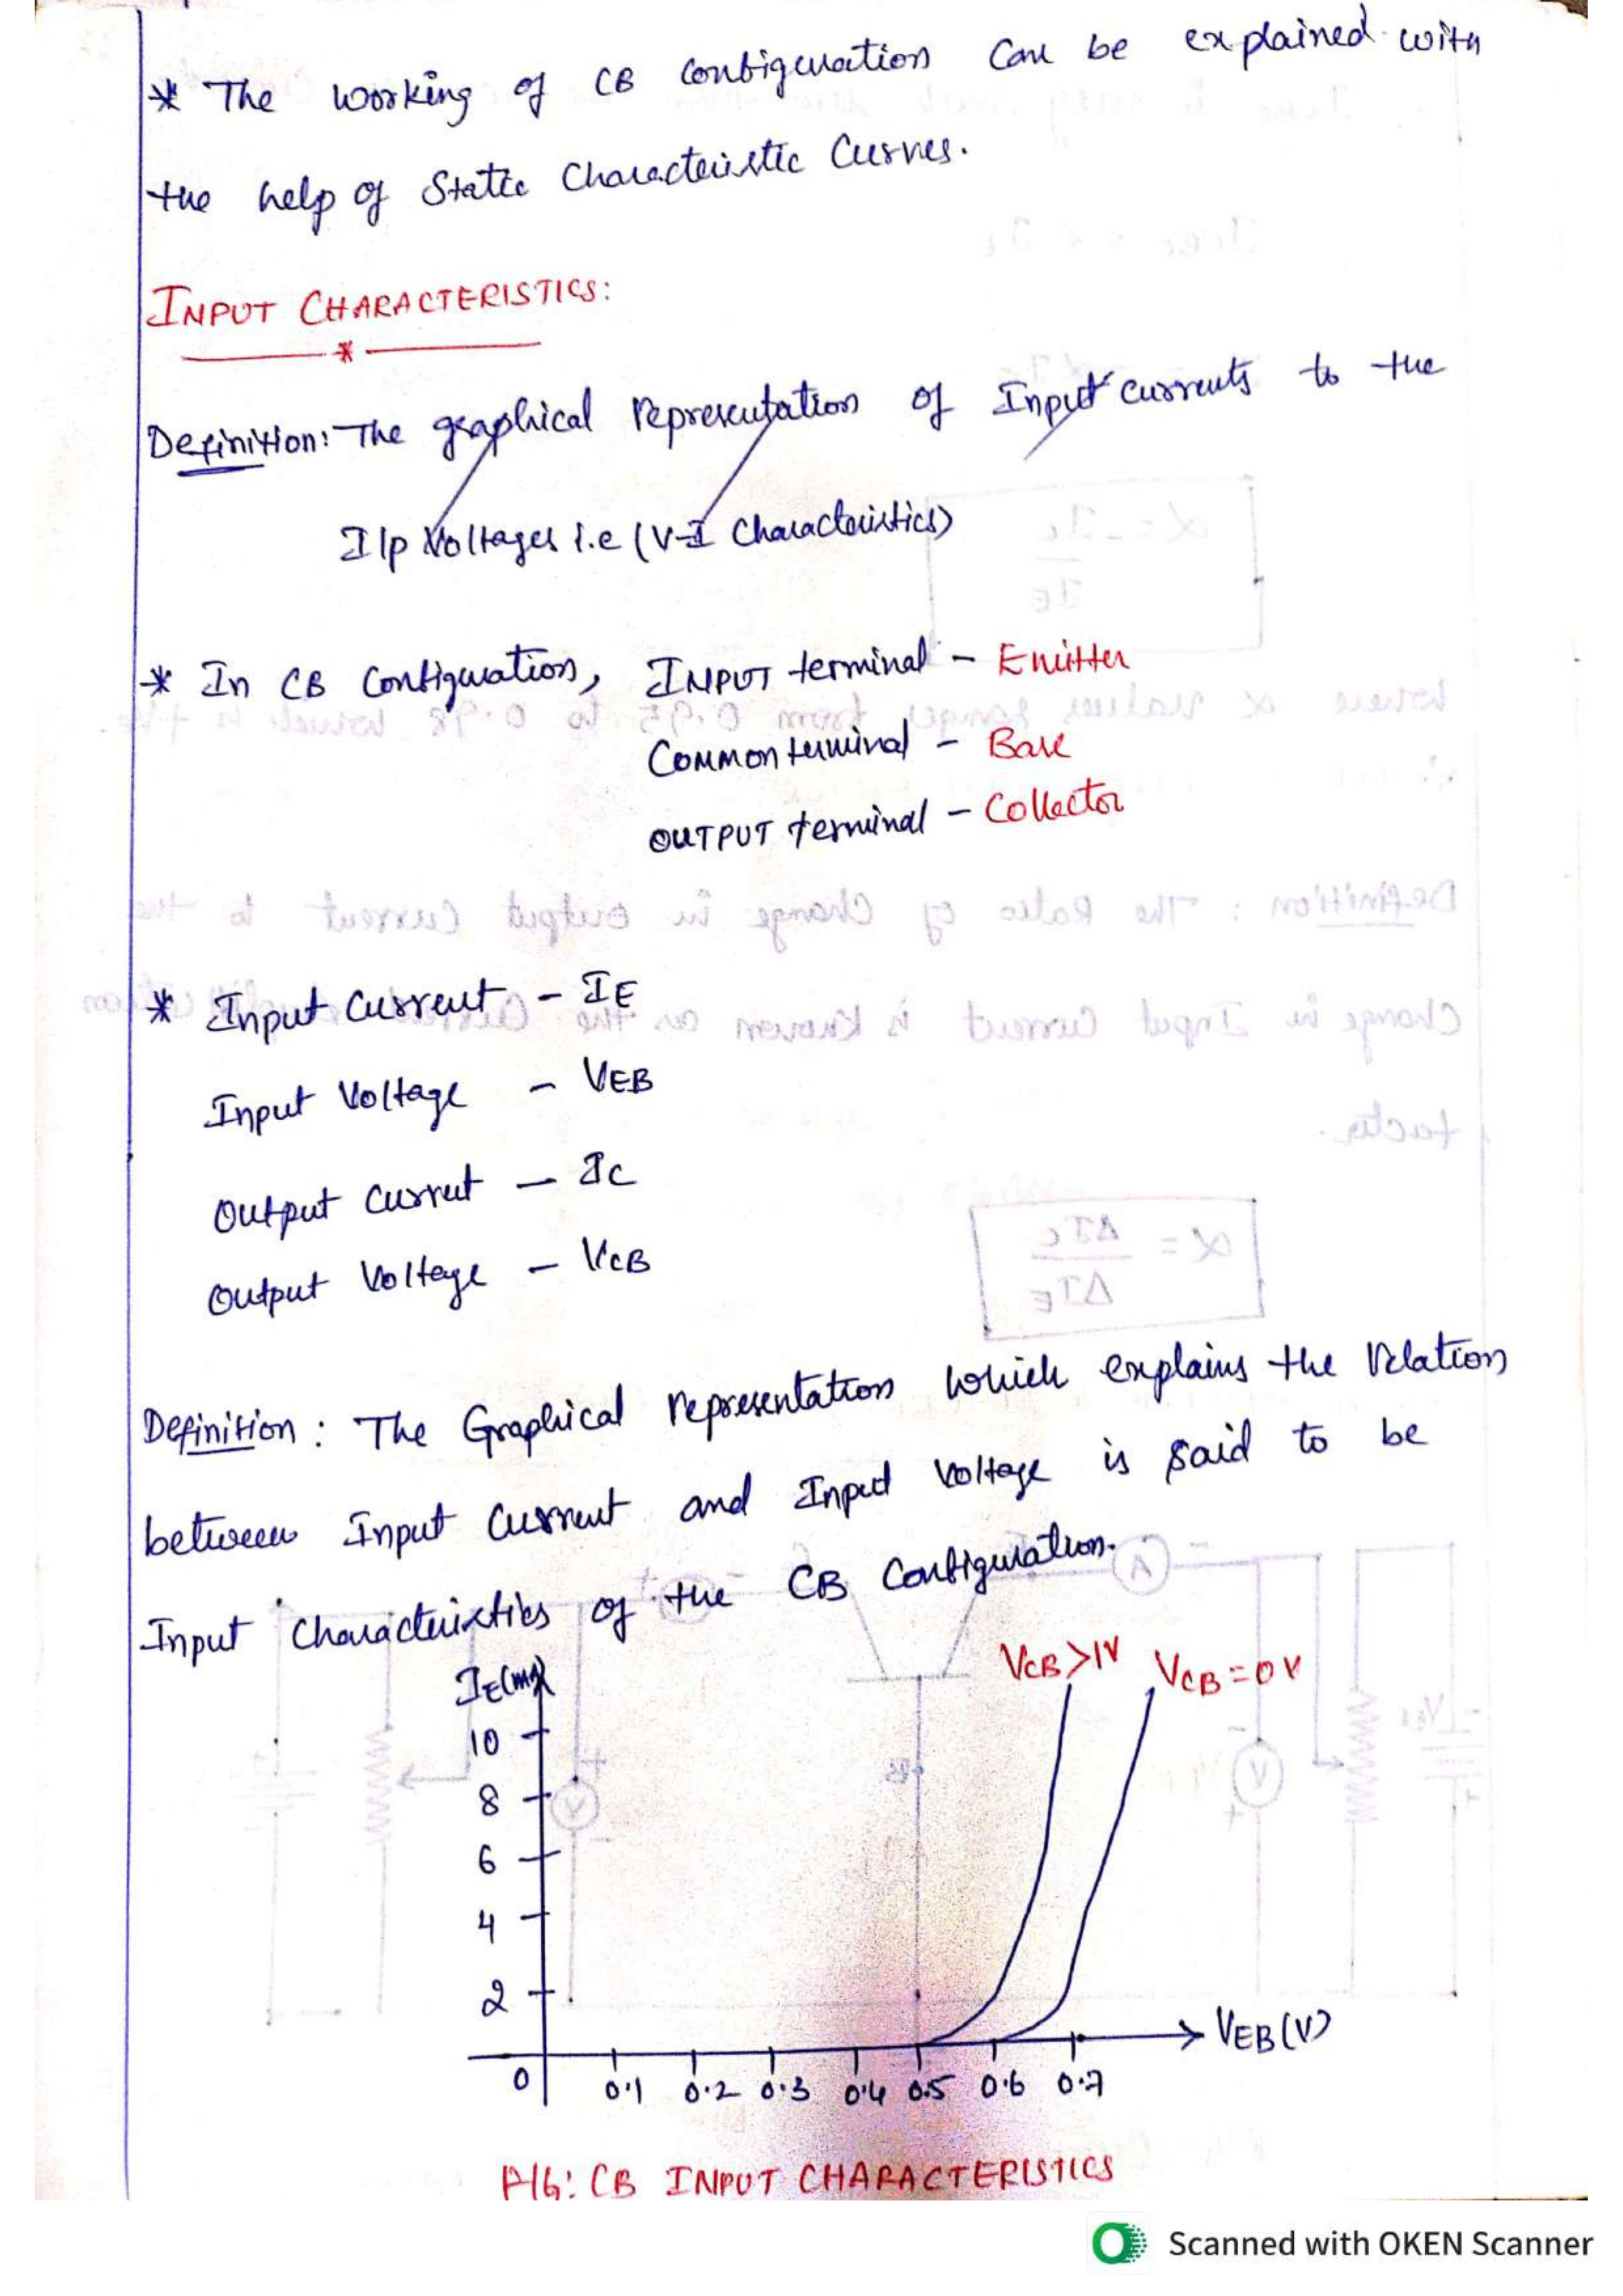 * The working of CB Configuration Can be explained with
the help of Static Characteristic Curves.
INPUT CHARACTERISTICS:
*
Definition: The graphical representation of Input currents to the
I/p Voltages i.e (V-I Characteristics)
* In CB Configuration, INPUT terminal - Emitter
COMMON terminal - Base
OUTPUT terminal - Collector
* Input Current - IE
Input Voltage - VEB
Output Current - IC
Output Voltage - VCB
Definition: The Graphical representation which explains the relation
between Input Current and Input Voltage is said to be
Input Characteristics of the CB Configuration.
IE(mA)
VCB>1V VCB=0V
10
8
6
4
2
0 0.1 0.2 0.3 0.4 0.5 0.6 0.7
VEB(V)
FIG: CB INPUT CHARACTERISTICS
Scanned with OKEN Scanner